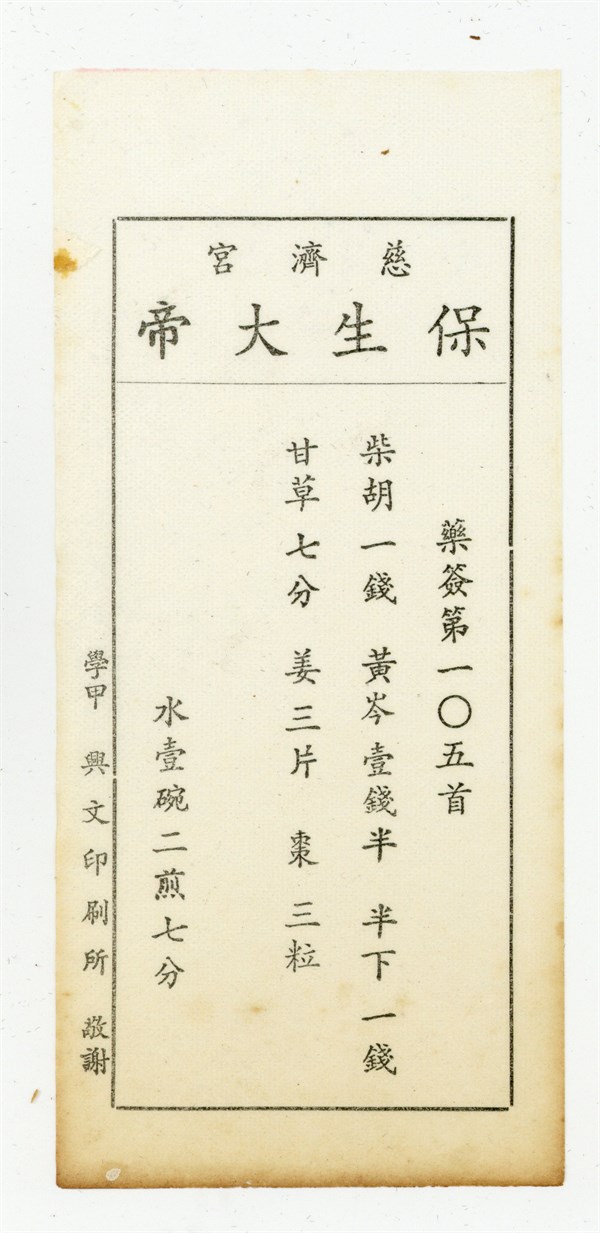 慈濟宮
保生大帝
藥簽第一〇五首
柴胡一錢 黃岑壹錢半 半下一錢
甘草七分 姜三片 棗三粒
水壹碗二煎七分
學甲 興文印刷所 敬謝